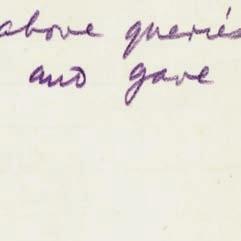 above queries
and gave